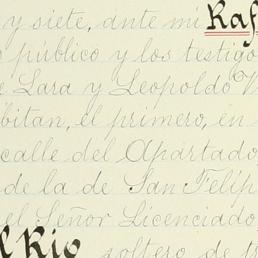 y siete, ante mí Raf
público y los testigo
Lara y Leopoldo V
bitan, el primero, en
calle del Apartado
de la de San Felip
el Señor Licenciado
l Río soltero de tr